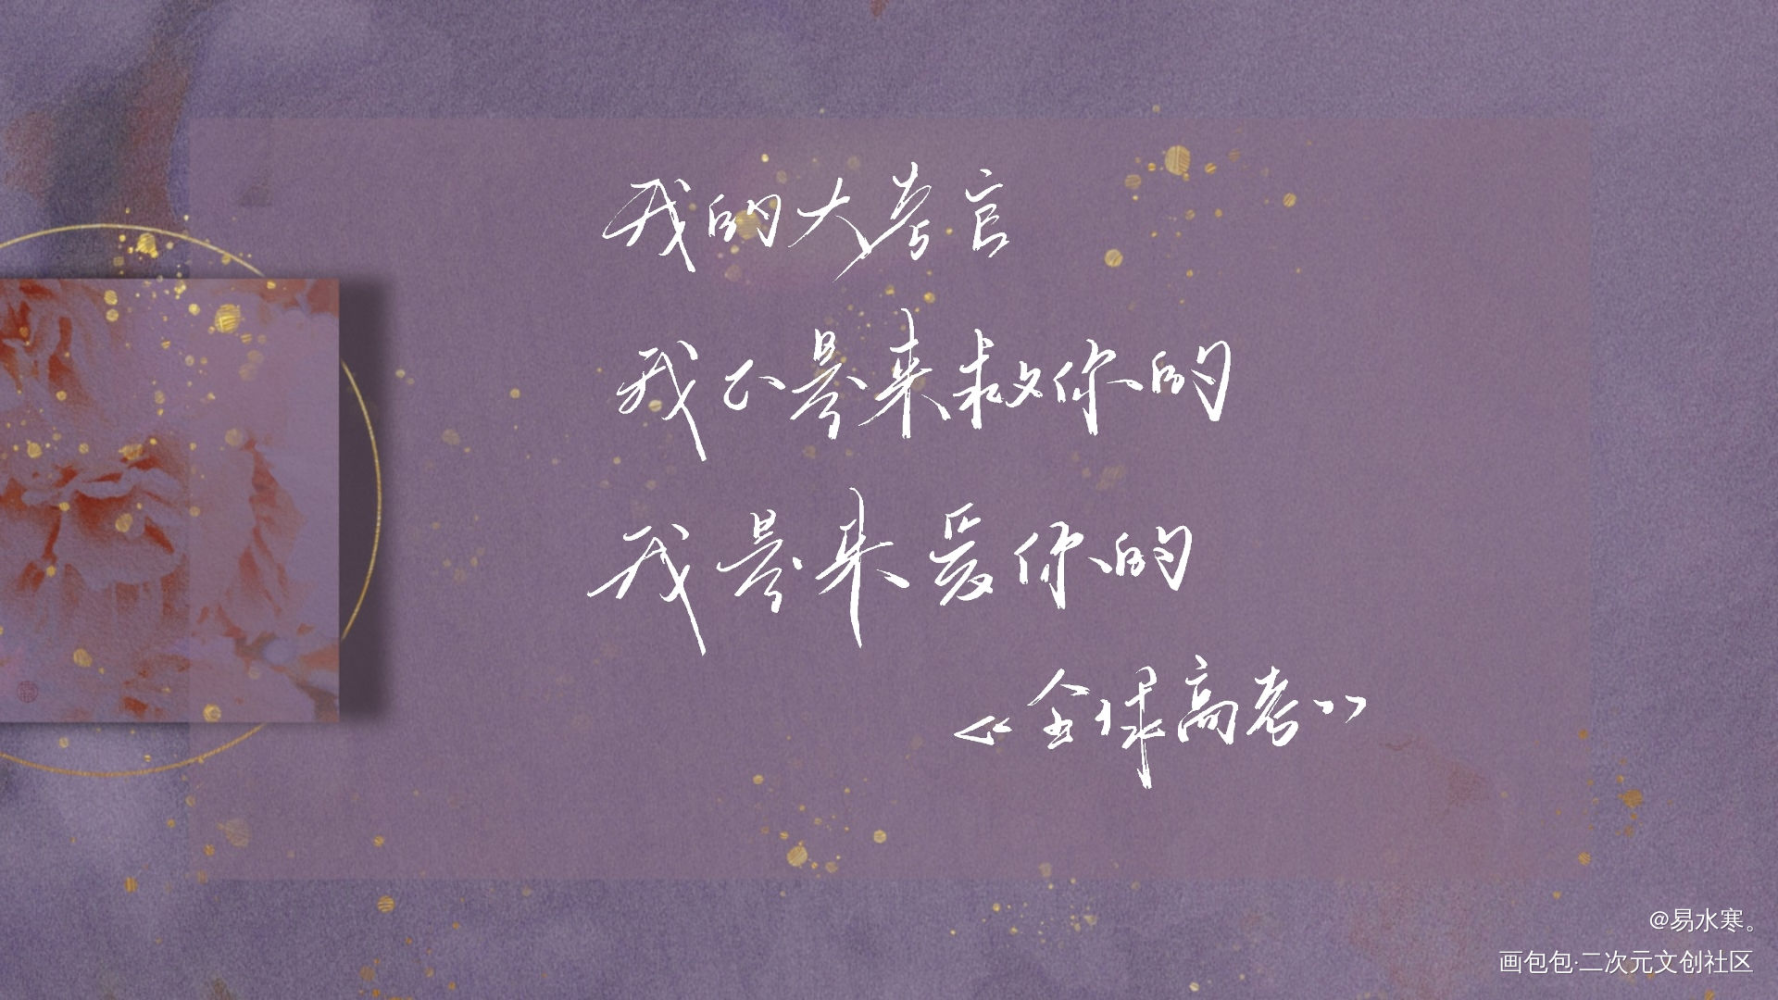 我的大考官
我不是来救你的
我是来爱你的
《全球高考》
@易水寒。
画包包·二次元文创社区